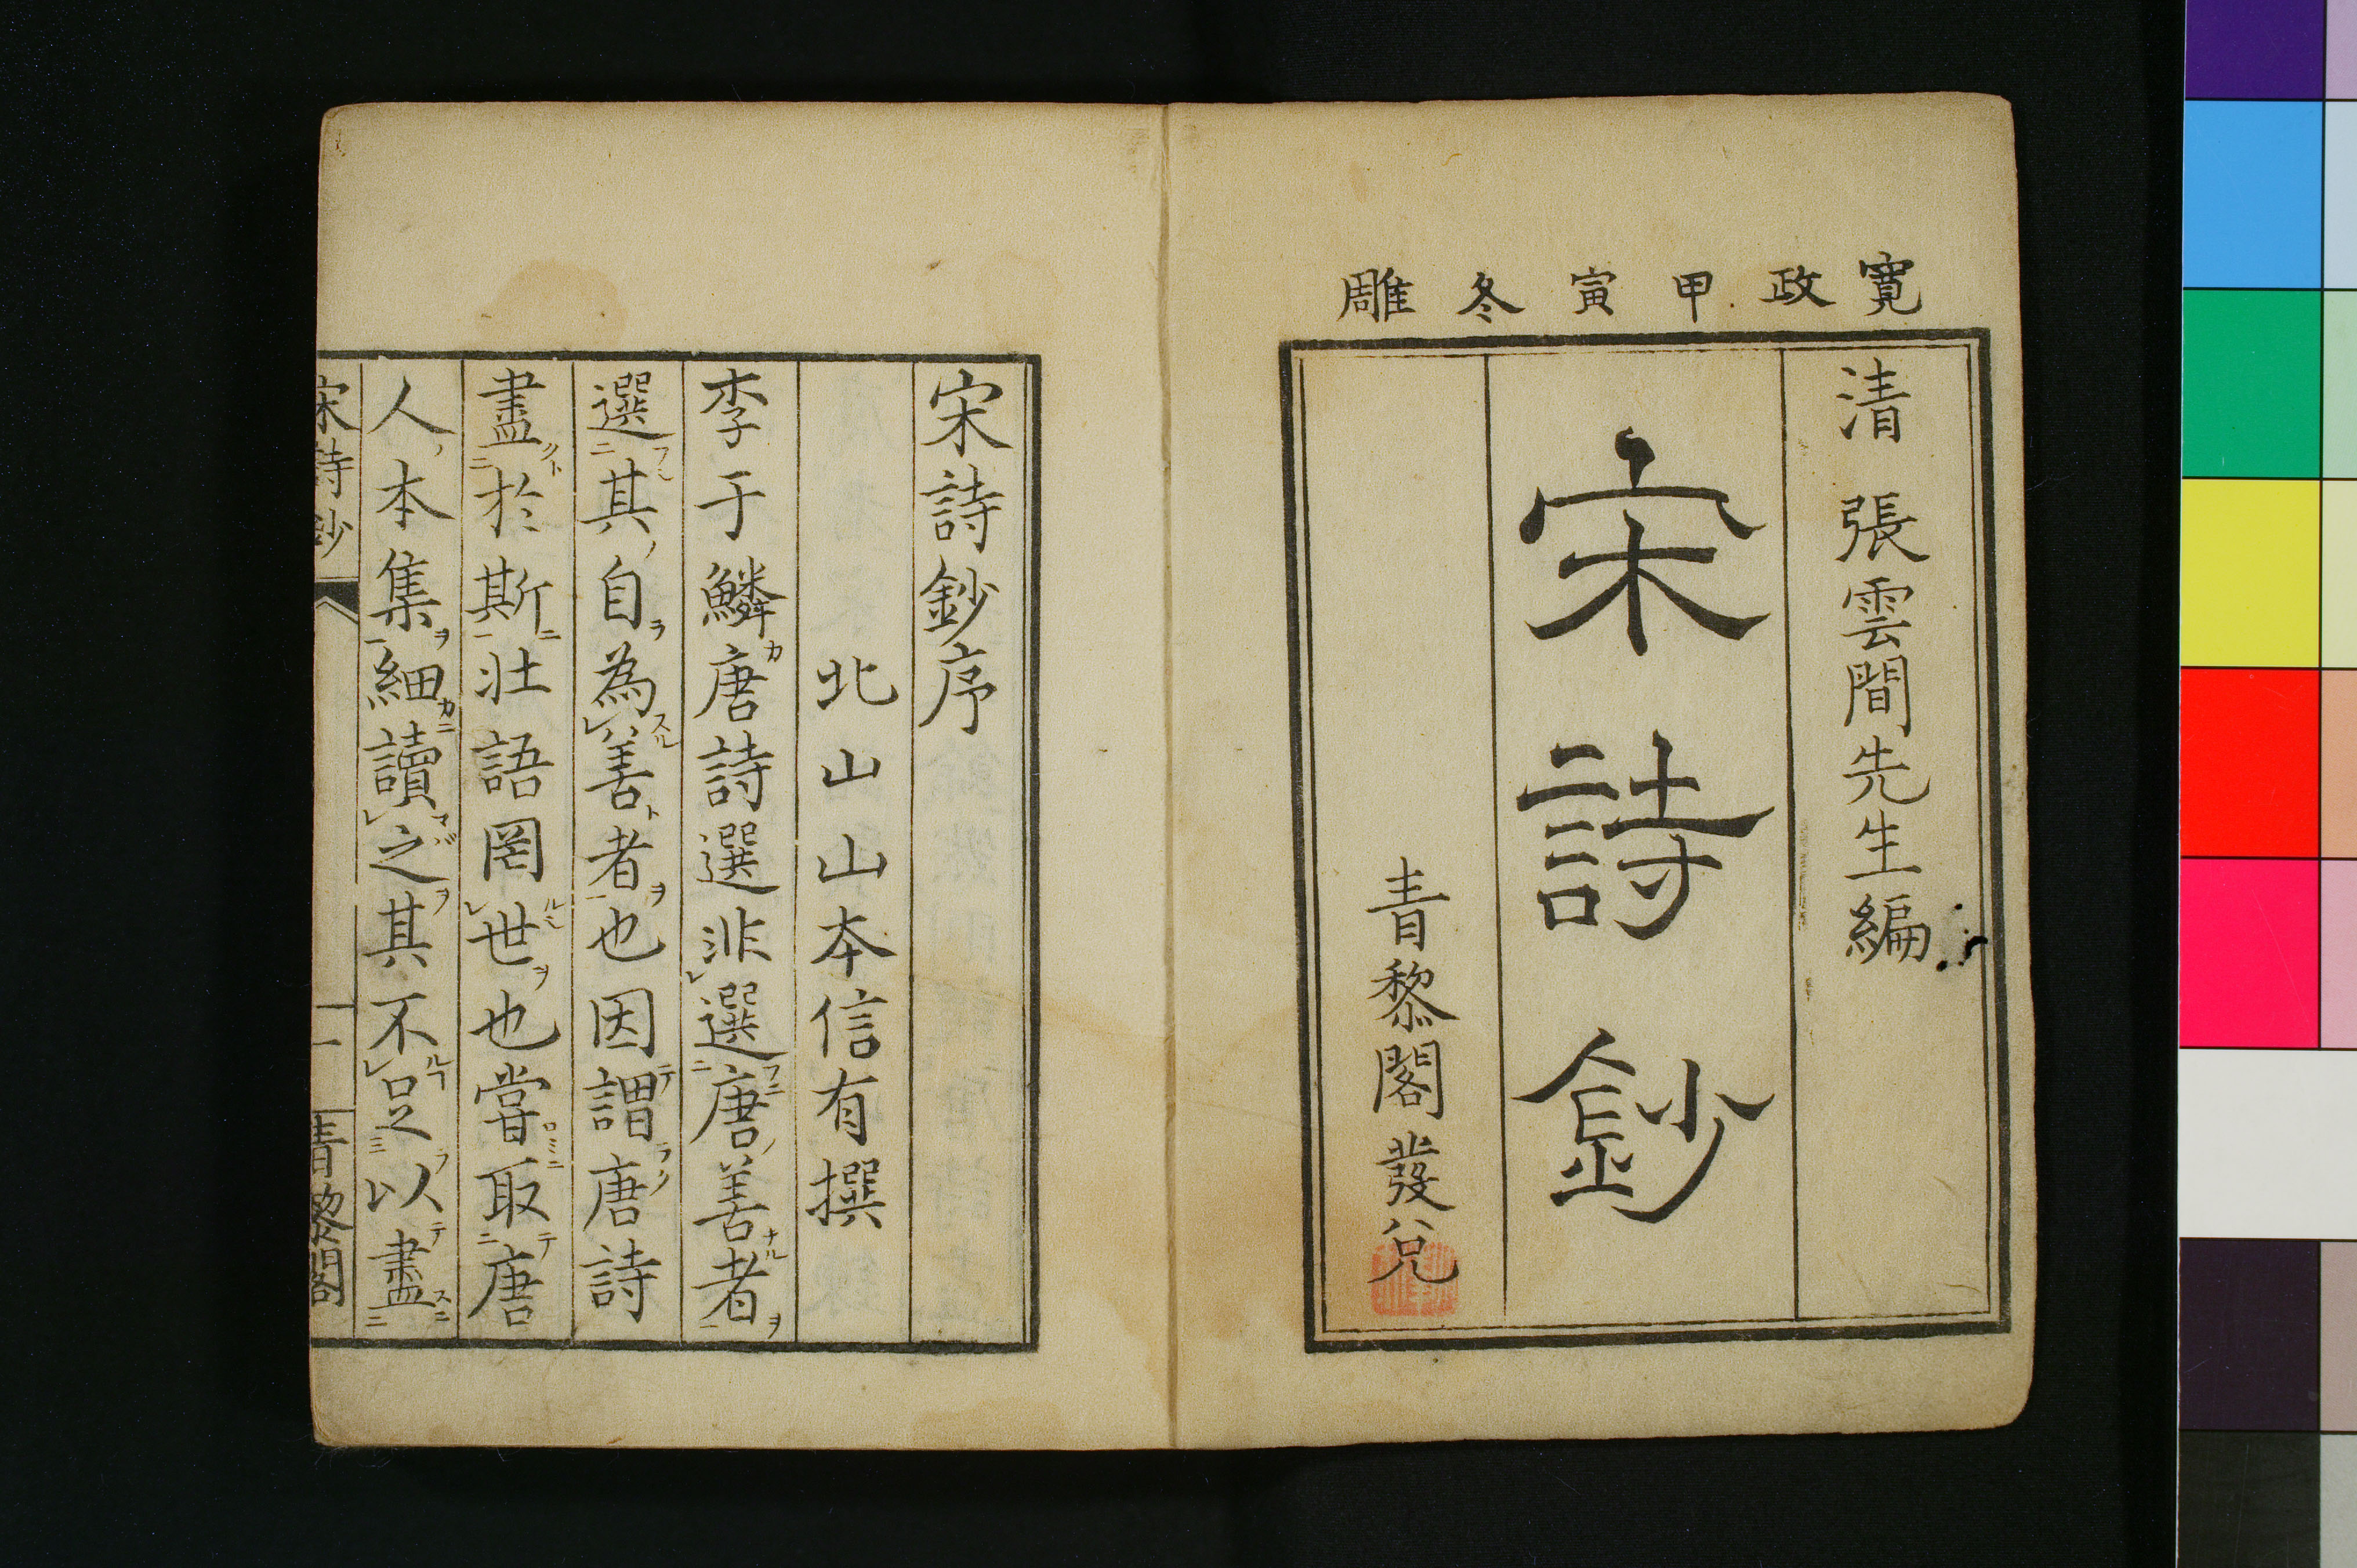 寛政甲寅冬雕
清 張雲間先生編
宋詩鈔
青黎閣發兌
宋詩鈔序
北山山本信有撰
李于鱗唐詩選非選唐善者
選其自為善者也因謂唐詩
盡於斯壮語罔世也嘗取唐
人本集細讀之其不足以盡
宋詩鈔 一 青黎閣